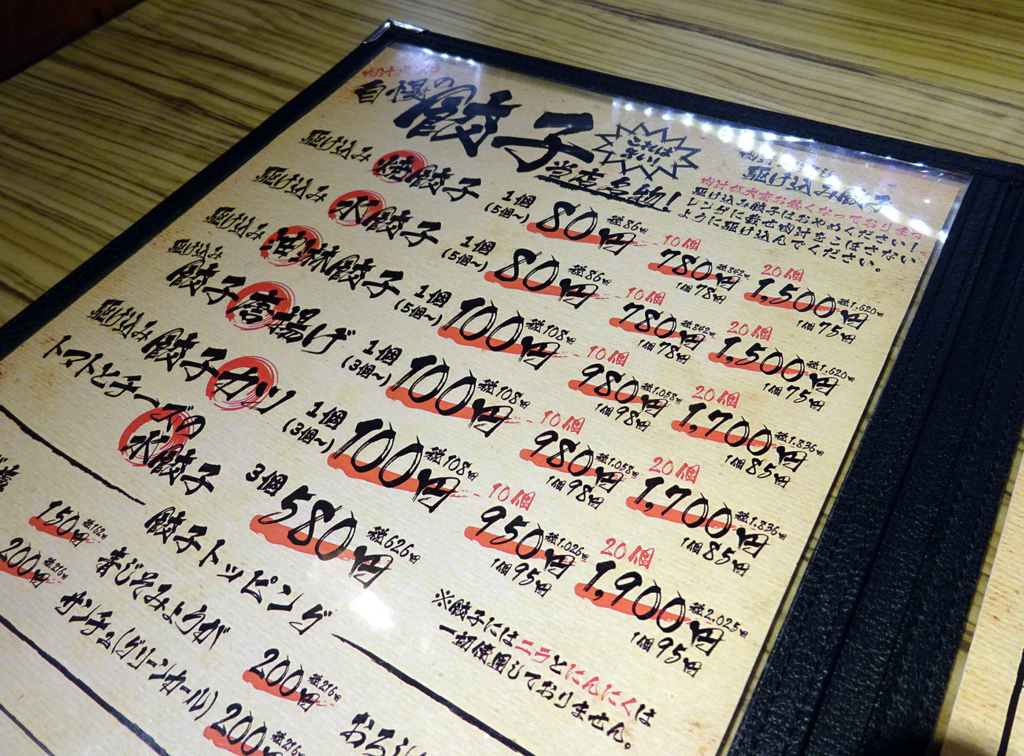 自慢の
餃子
これはまいり
当店名物!
駆け込み餃子
肉汁が大変熱くなっております
駆け込み餃子はおやめください!
レンゲに載せ肉汁をこぼさない
ように駆け込んでください。
駆け込み 焼餃子 1個 (5個〜) 80円 税86円 10個 780円 税842円 1個78円 20個 1,500円 税1,620円 1個75円
駆け込み 水餃子 1個 (5個〜) 80円 税86円 10個 780円 税842円 1個78円 20個 1,500円 税1,620円 1個75円
駆け込み 沖縄餃子 1個 (5個〜) 100円 税108円 10個 980円 税1,058円 1個98円 20個 1,700円 税1,836円 1個85円
駆け込み 餃子唐揚げ 1個 (3個〜) 100円 税108円 10個 980円 税1,058円 1個98円 20個 1,700円 税1,836円 1個85円
駆け込み 餃子カツ 1個 (3個〜) 100円 税108円 10個 950円 税1,026円 1個95円 20個 1,900円 税2,025円 1個95円
トマトとチーズの
水餃子 3個 580円 税626円
※餃子にはニラとにんにくは
一切使用しておりません。
餃子トッピング
150円 税162円
青じそみょうが 200円 税216円
200円 税216円
サンチュ(グリーンカール) 200円 税216円
おろし